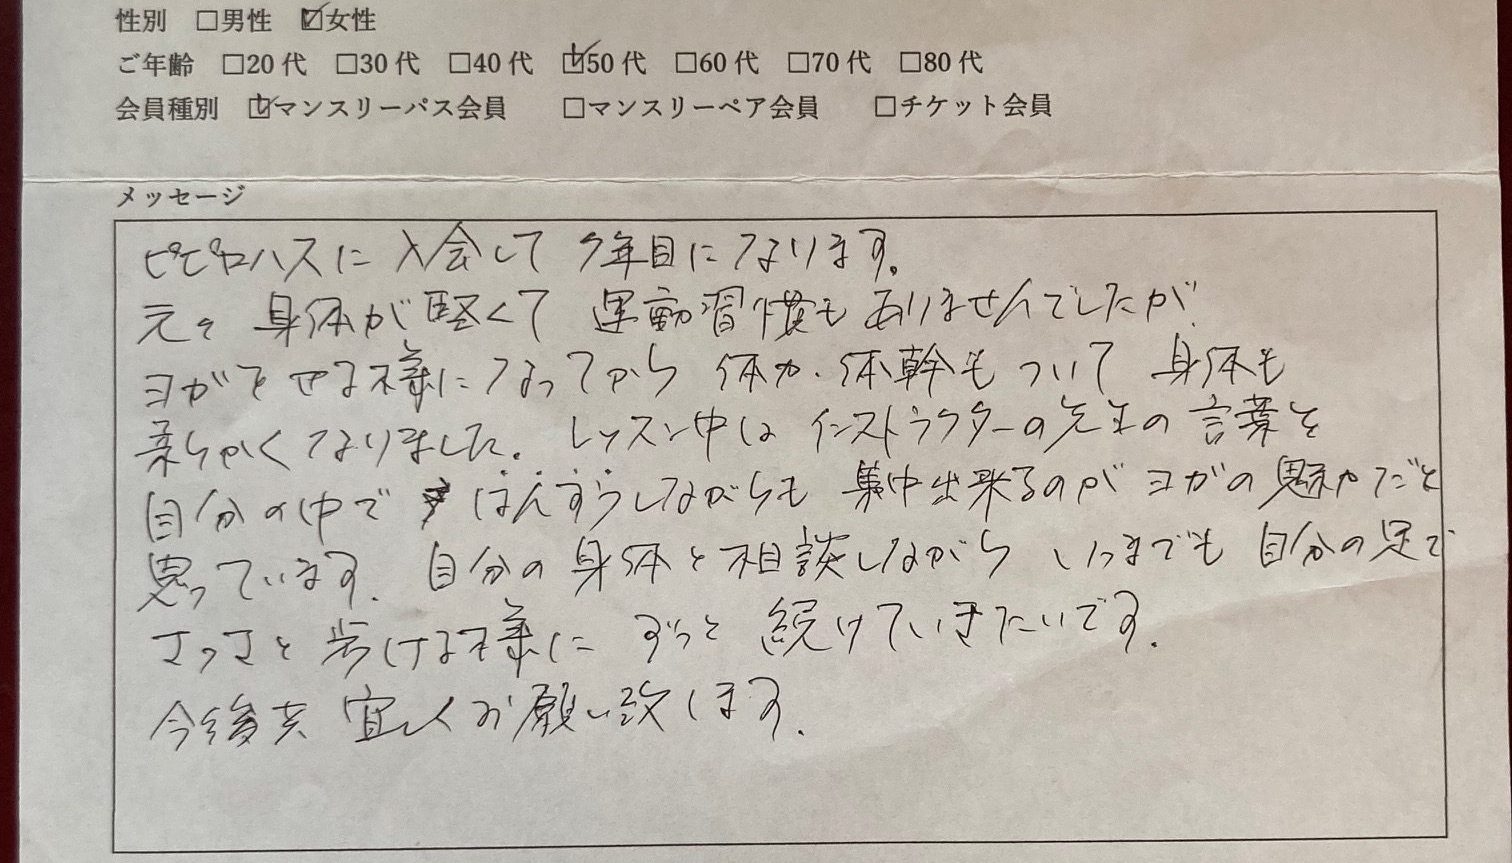 性別 □男性 ☑女性
ご年齢 □20代 □30代 □40代 ☑50代 □60代 □70代 □80代
会員種別 ☑マンスリーパス会員 □マンスリーペア会員 □チケット会員
メッセージ
ピピロハスに入会して 7年目になります。
元々 身体が堅くて 運動習慣もありませんでしたが
ヨガをやる様になってから 体力・体幹もついて 身体も
柔らかくなりました。レッスン中は インストラクターの先生の言葉を
自分の中で はんすうしながらも 集中出来るのがヨガの魅力だと
思っています。自分の身体と相談しながら いつまでも 自分の足で
さっさと歩ける様に ずっと 続けていきたいです。
今後共 宜しくお願い致します。